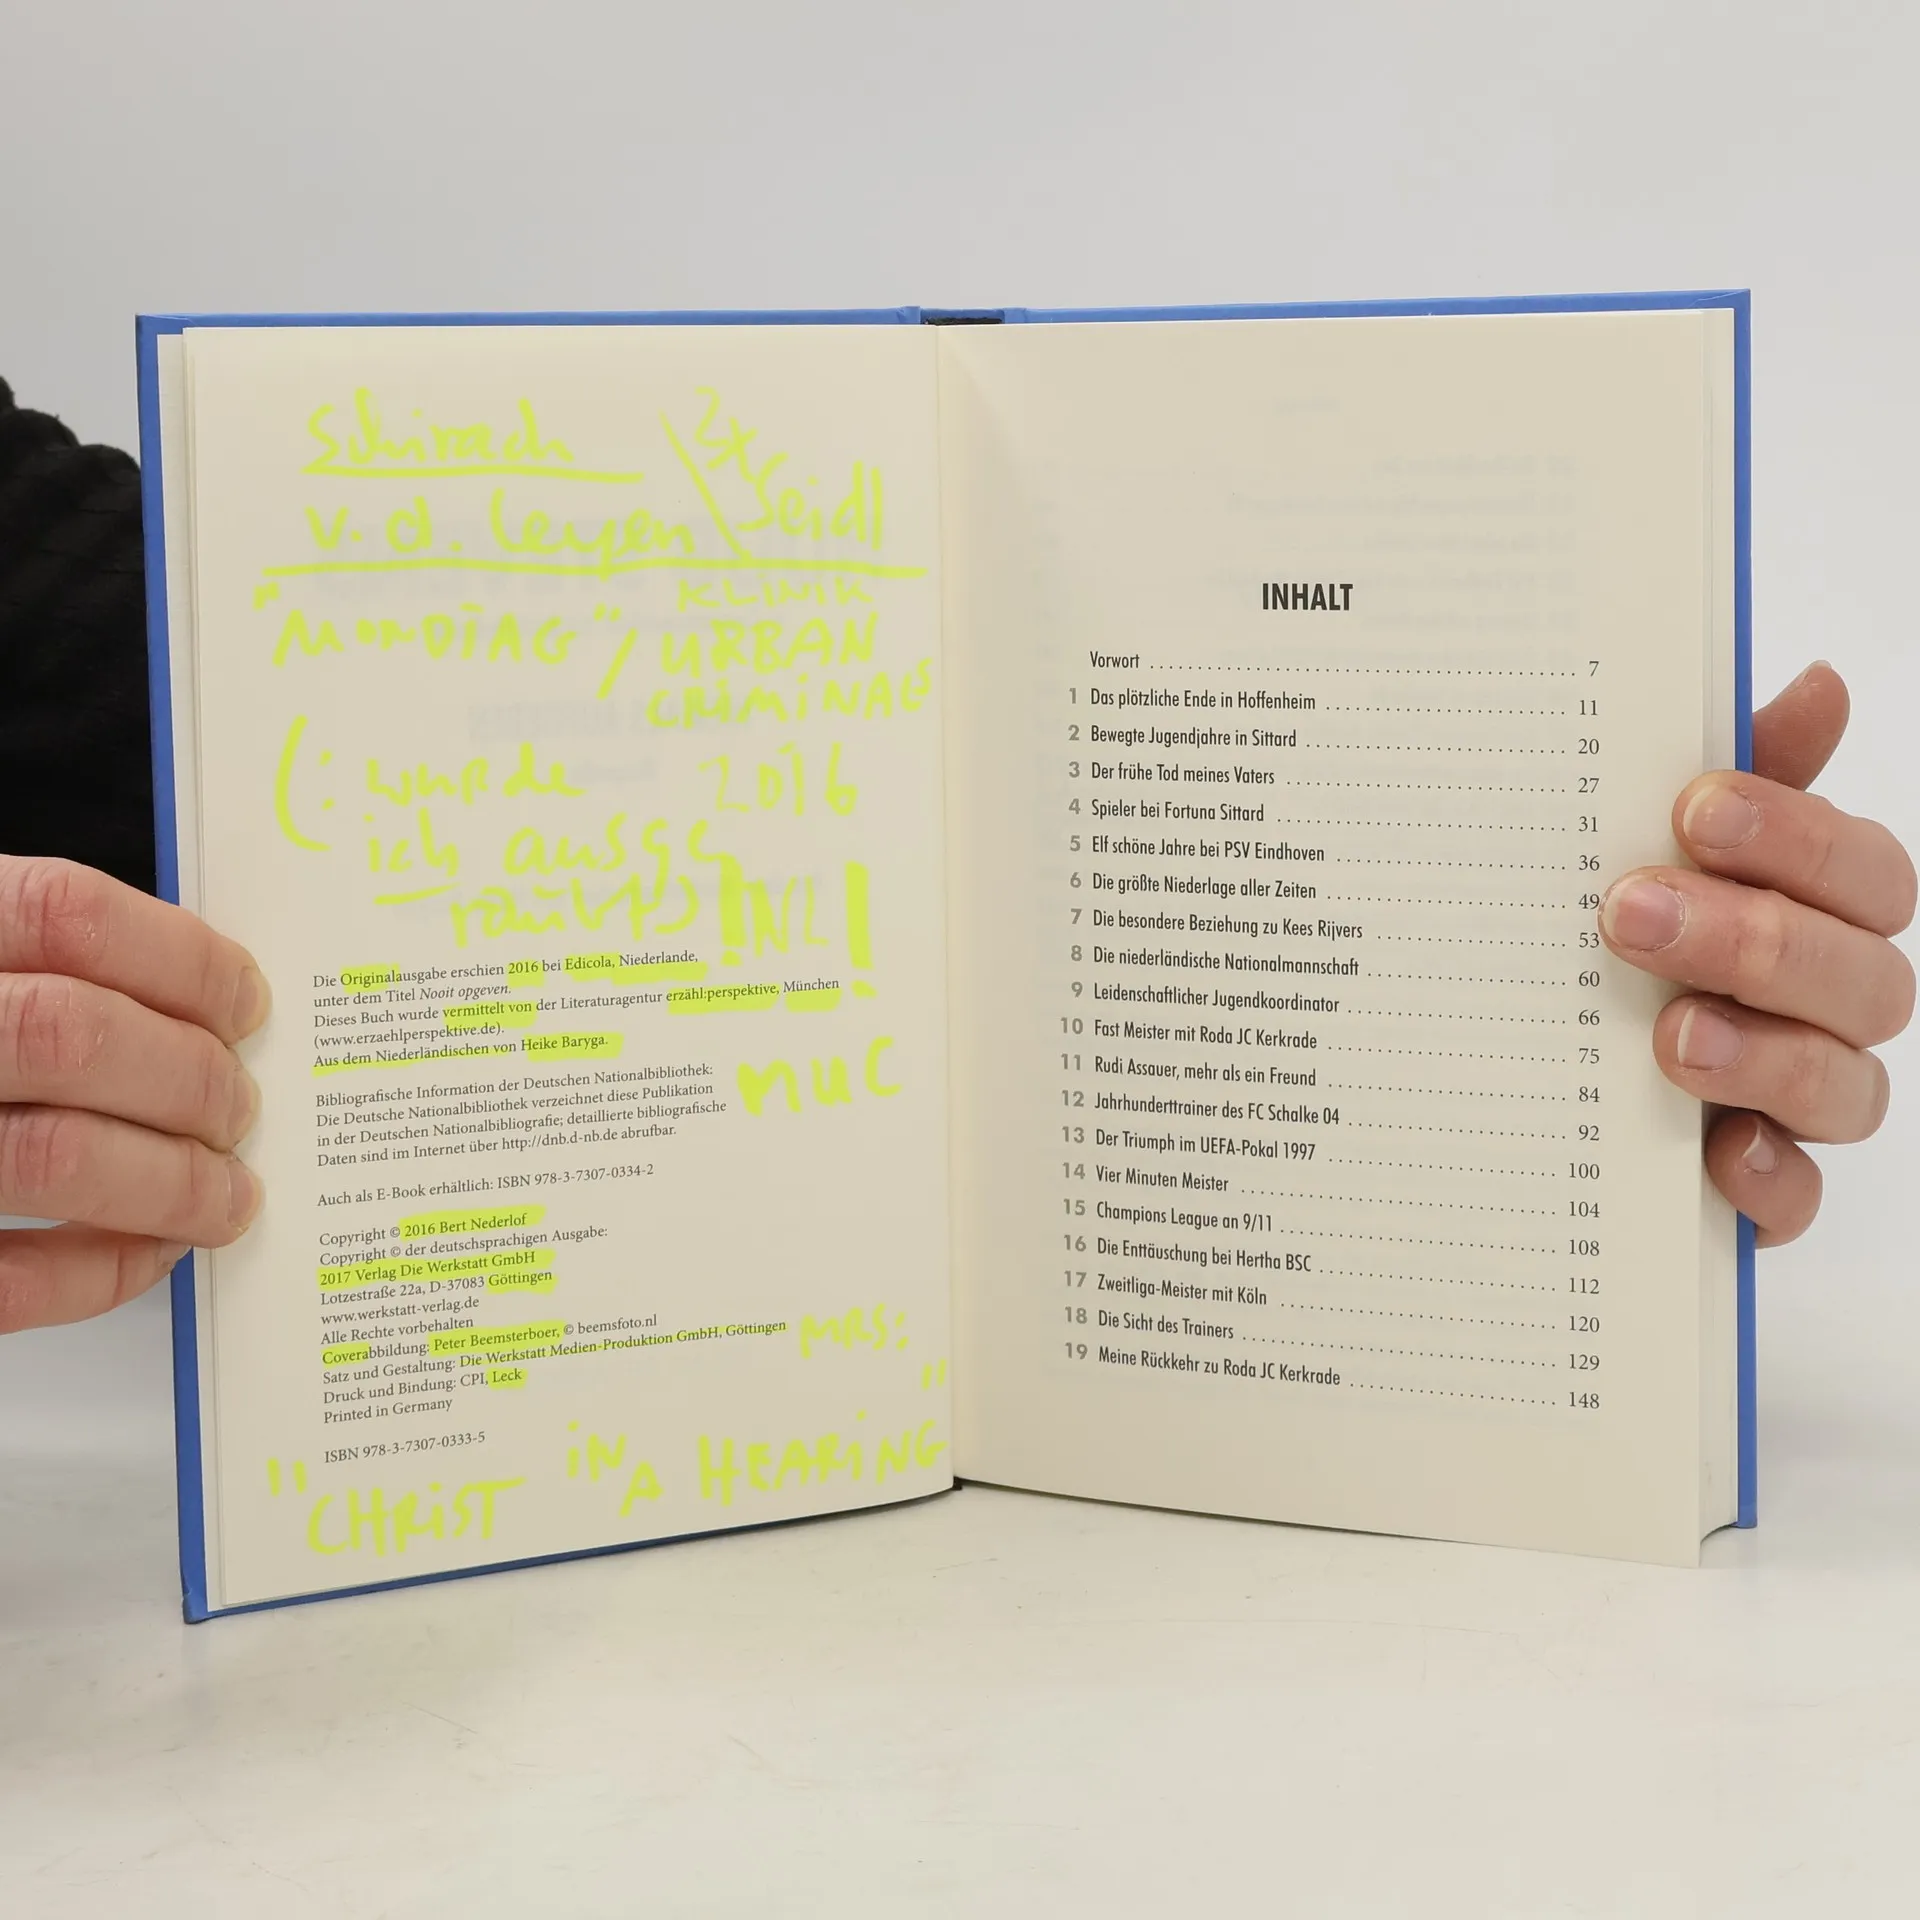 Schirach
2x
Seidl
v. d. Leyen
"MONDIAG" /
KLINIK
URBAN
CRIMINALS
(: wurde
2016
ich ausge
raubt
!NL!
Die Originalausgabe erschien 2016 bei Edicola, Niederlande,
unter dem Titel Nooit opgeven.
Dieses Buch wurde vermittelt von der Literaturagentur erzähl:perspektive, München
(www.erzaehlperspektive.de).
Aus dem Niederländischen von Heike Baryga.
MUC
Bibliografische Information der Deutschen Nationalbibliothek:
Die Deutsche Nationalbibliothek verzeichnet diese Publikation
in der Deutschen Nationalbibliografie; detaillierte bibliografische
Daten sind im Internet über http://dnb.d-nb.de abrufbar.
Auch als E-Book erhältlich: ISBN 978-3-7307-0334-2
Copyright © 2016 Bert Nederlof
Copyright © der deutschsprachigen Ausgabe:
2017 Verlag Die Werkstatt GmbH
Lotzestraße 22a, D-37083 Göttingen
www.werkstatt-verlag.de
Alle Rechte vorbehalten
Coverabbildung: Peter Beemsterboer, © beemsfoto.nl
Satz und Gestaltung: Die Werkstatt Medien-Produktion GmbH, Göttingen
Druck und Bindung: CPI, Leck
Printed in Germany
MRS:
ISBN 978-3-7307-0333-5
"CHRIST IN A HEARING"
INHALT
Vorwort 7
1 Das plötzliche Ende in Hoffenheim 11
2 Bewegte Jugendjahre in Sittard 20
3 Der frühe Tod meines Vaters 27
4 Spieler bei Fortuna Sittard 31
5 Elf schöne Jahre bei PSV Eindhoven 36
6 Die größte Niederlage aller Zeiten 49
7 Die besondere Beziehung zu Kees Rijvers 53
8 Die niederländische Nationalmannschaft 60
9 Leidenschaftlicher Jugendkoordinator 66
10 Fast Meister mit Roda JC Kerkrade 75
11 Rudi Assauer, mehr als ein Freund 84
12 Jahrhunderttrainer des FC Schalke 04 92
13 Der Triumph im UEFA-Pokal 1997 100
14 Vier Minuten Meister 104
15 Champions League an 9/11 108
16 Die Enttäuschung bei Hertha BSC 112
17 Zweitliga-Meister mit Köln 120
18 Die Sicht des Trainers 129
19 Meine Rückkehr zu Roda JC Kerkrade 148